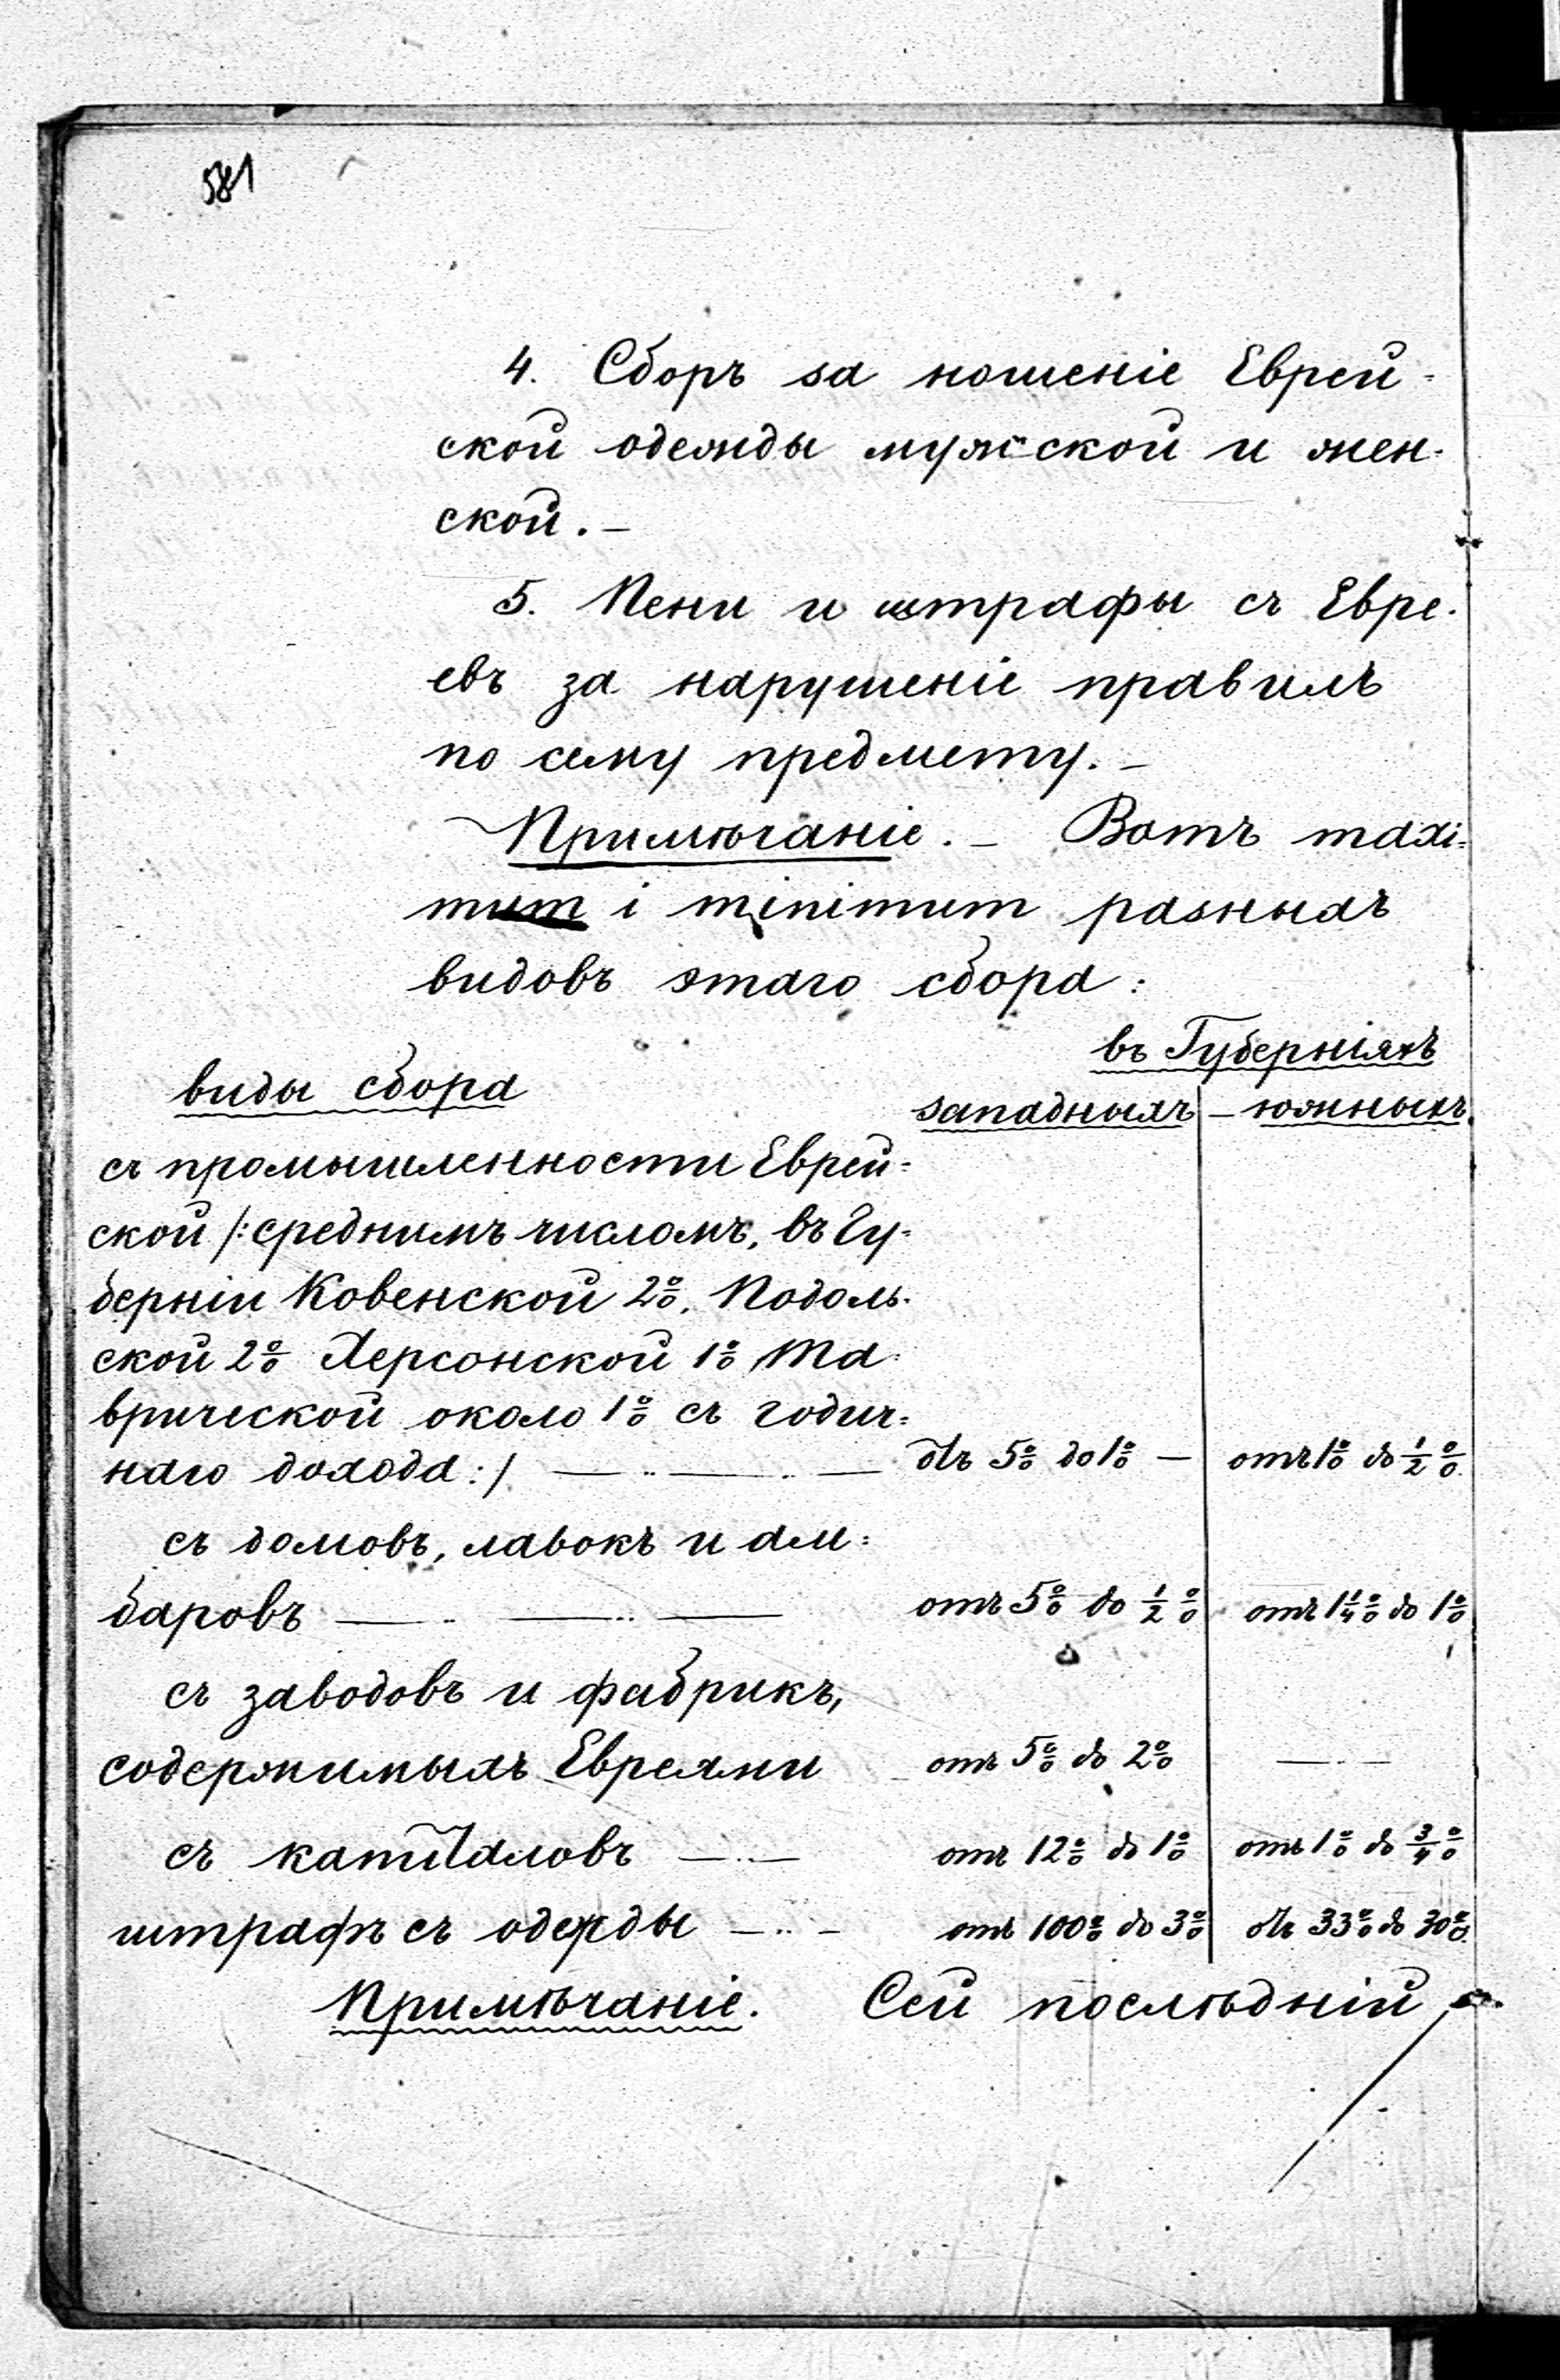 581
4. Сборъ за ношеніе Еврей-
ской одежды мужской и жен-
ской. –
5. Пени и штрафы съ Евре-
евъ за нарушеніе правилъ
по сему предмету. –
Примѣчаніе. – Вотъ maxi=
mum i minimum разныхъ
видовъ этаго сбора:
въ Губерніяхъ
виды сбора
западныхъ – южныхъ.
съ промышленности Еврей=
ской /: среднимъ числомъ, въ Гу=
берніи Ковенской 2%, Подоль-
ской 2% Херсонской 1% Та-
врической около 1% съ годич=
наго дохода :/ — ·· — · — отъ 5% до 1% — отъ 1% до ½%
съ домовъ, лавокъ и ам=
баровъ — ·· — ·· — отъ 5% до ½% отъ 1¼% до 1%
съ заводовъ и фабрикъ,
содержимыхъ Евреями отъ 5% до 2% — · —
съ капиталовъ — · — отъ 12% до 1% отъ 1% до ¾%
штрафъ съ одежды — ·· — отъ 100% до 3% отъ 33% до 30%
Примѣчаніе. Сей послѣдній